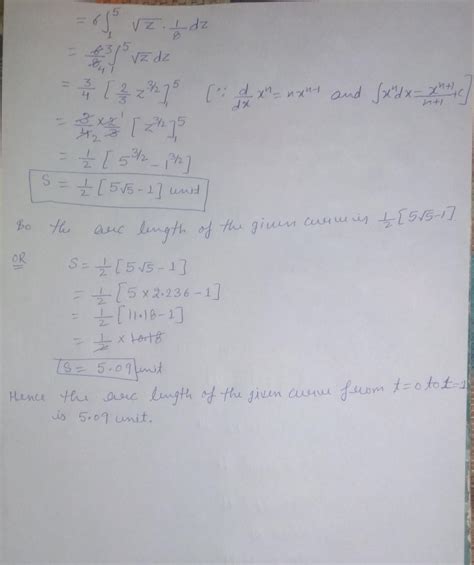 = 6∫₁⁵ √z · 1/8 dz
= 6/8 3/4 ∫₁⁵ √z dz
= 3/4 [2/3 z^3/2]₁⁵ [∵ d/dx xⁿ = nxⁿ⁻¹ and ∫xⁿdx = xⁿ⁺¹/n+1 + C]
= 3/4₂ × 2¹/3 [z^3/2]₁⁵
= 1/2 [5^3/2 - 1^3/2]
S = 1/2 [5√5 - 1] unit
So the arc length of the given curve is 1/2 [5√5-1]
OR S = 1/2 [5√5 - 1]
= 1/2 [5 × 2.236 - 1]
= 1/2 [11.18 - 1]
= 1/2 × 10.18
S = 5.09 unit
Hence the arc length of the given curve from t=0 to t=1
is 5.09 unit.